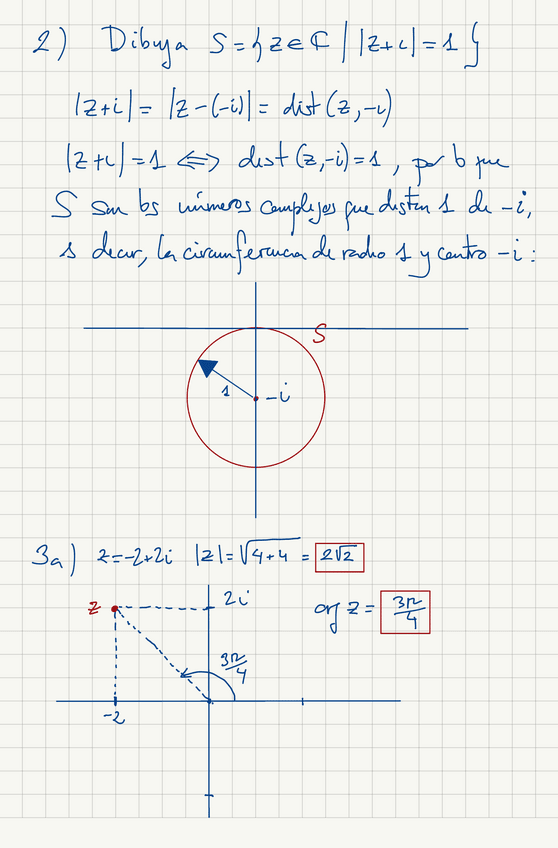 2) Dibuja S = { z ∈ ℂ / |z+i| = 1 }
|z+i| = |z-(-i)| = dist(z,-i)
|z+i| = 1 ⟺ dist(z,-i) = 1 , por lo que
S son los números complejos que distan 1 de -i,
es decir, la circunferencia de radio 1 y centro -i :
S
1
-i
3a) z = -2+2i |z| = √4+4 = 2√2
z
2i
arg z = 3π/4
3π/4
-2